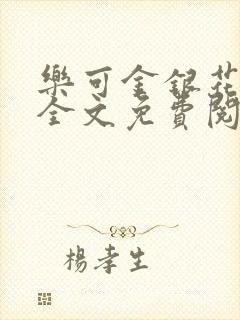 樂可金銀花
全文免費閱
楊孝生